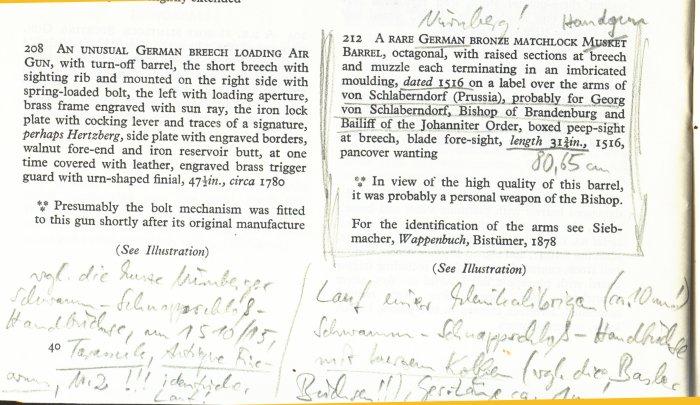 Nürnberg! Handgun
208 AN UNUSUAL GERMAN BREECH LOADING AIR
GUN, with turn-off barrel, the short breech with
sighting rib and mounted on the right side with
spring-loaded bolt, the left with loading aperture,
brass frame engraved with sun ray, the iron lock
plate with cocking lever and traces of a signature,
perhaps Hertzberg, side plate with engraved borders,
walnut fore-end and iron reservoir butt, at one
time covered with leather, engraved brass trigger
guard with urn-shaped finial, 47½in., circa 1780
⁂ Presumably the bolt mechanism was fitted
to this gun shortly after its original manufacture
(See Illustration)
vgl. die kurze Nürnberger
Schwamm-Schnappschloß-
Handbüchse, um 1510/15,
40
identische
Lauf!
212 A RARE GERMAN BRONZE MATCHLOCK MUSKET
BARREL, octagonal, with raised sections at breech
and muzzle each terminating in an imbricated
moulding, dated 1516 on a label over the arms of
von Schlaberndorf (Prussia), probably for Georg
von Schlaberndorf, Bishop of Brandenburg and
Bailiff of the Johanniter Order, boxed peep-sight
at breech, blade fore-sight, length 31¾in., 1516,
pancover wanting
80,65 cm
⁂ In view of the high quality of this barrel,
it was probably a personal weapon of the Bishop.
For the identification of the arms see Sieb-
macher, Wappenbuch, Bistümer, 1878
(See Illustration)
Lauf einer kleinkalibrigen (ca. 10 mm!)
Schwamm-Schnappschloß-Handbüchse
mit kurzem Kolben (vgl. die Basler
Büchsen!!),